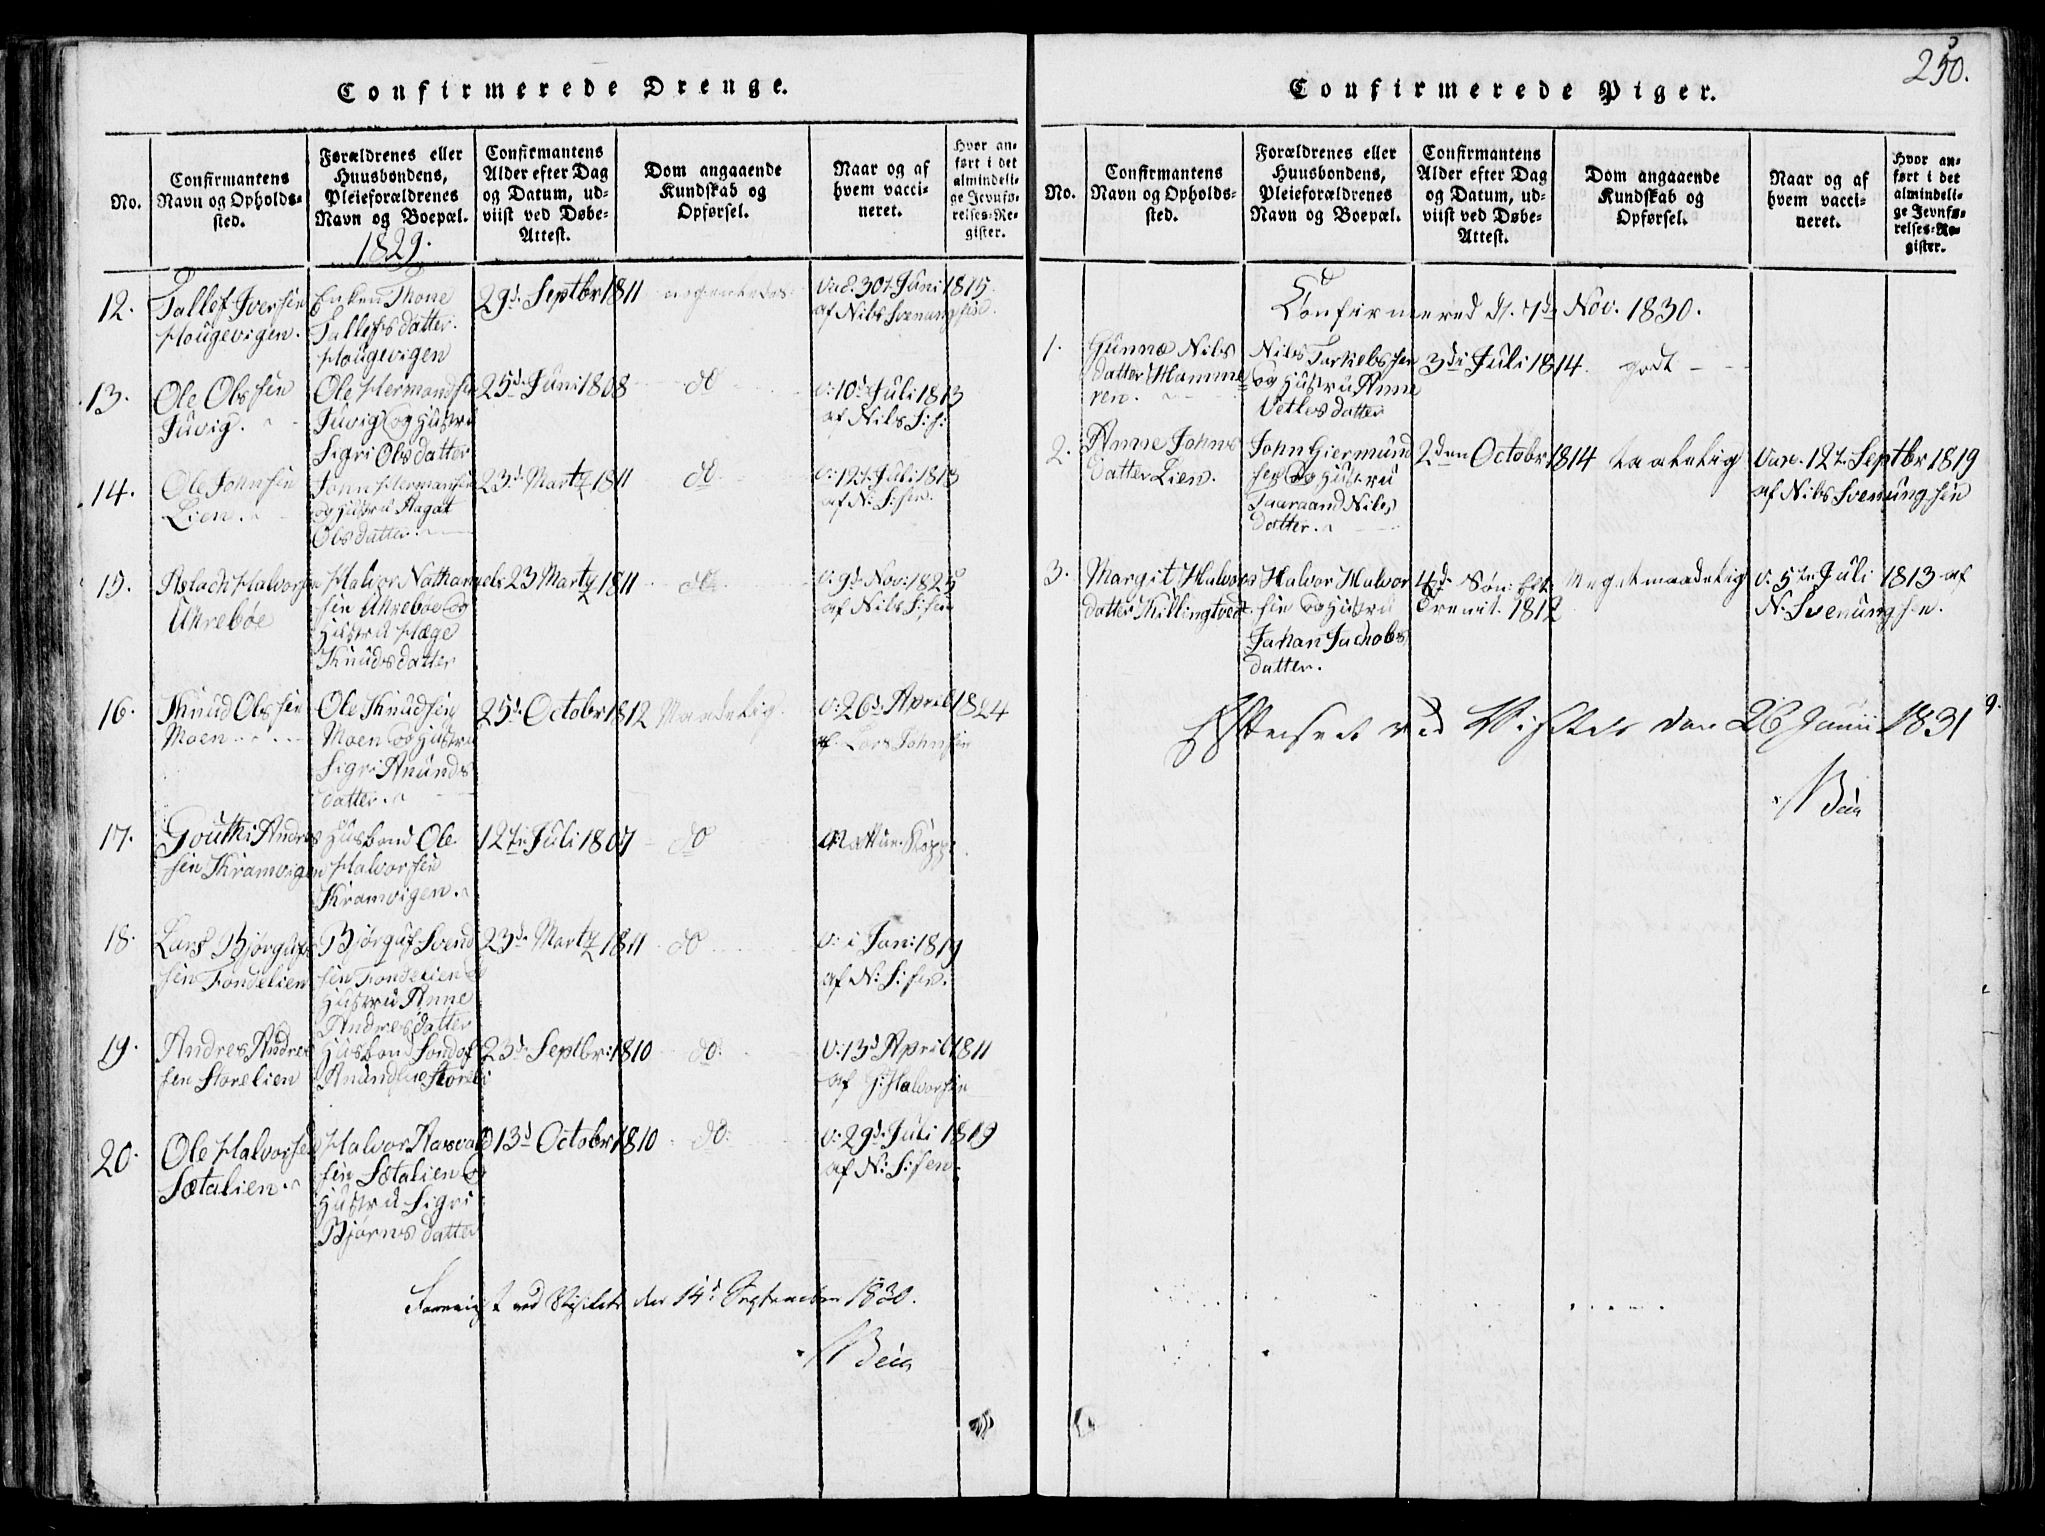 250.
Confirmerede Drenge.
No.
Confirmantens
Navn og Opholds=
sted.
Forældrenes eller
Huusbondens,
Pleieforældrenes
Navn og Boepæl.
1829.
Confirmantens
Alder efter Dag
og Datum, ud=
viist ved Døbe=
Attest.
Dom angaaende
Kundskab og
Opførsel.
Naar og af
hvem vacci=
neret.
Hvor an=
ført i det
almindeli=
ge Jevnfø=
relses=Re=
gister.
12.
Tallef Iversen
Hougevigen.
Enken Thone
Tallefsdatter.
Hougevigen
29d. Septbr 1811
Vac. 30t Juni 1815
af Nils Svenungsen.
13.
Ole Olssen
Juvig.
Ole Hermandsen
Juvig og Hustru
Sigri Olsdatter
25d. Juni 1808
do
v: 10d Juli 1813
af Nils S:s:
14.
Ole Johnsen
Lien.
John Hermansen
og Hustru Aagat
Olsdatter.
23d. Marty 1811
do.
v: 12t Juli 1813
af N: S:sen.
15.
Aslach Halvorsen
Uhrebøe
Halvor Nathanaels
sen Uhrebøe og
Hustru Hæge
Knudsdatter
23 Marty 1811
do
v: 9d. Nov: 1825
af Nils S:sen
16.
Knud Olssen
Moen
Ole Knudsen
Moen og Hustru
Sigri Anunds
datter.
25d. Octobr 1812
Maadelig.
v: 26d April 1824
af Lars Johnsen
17.
Gouthi Andres
sen Kramvigen
Husbond Ole
Halvorsen
Kramvigen.
12te Juli 1807
do
Nattur. Kopp.
18.
Lars Bjørgufs
sen Fondelien
Bjørguf Svend
sen Fondelien og
Hustru Anne
Andresdatter
23d. Marty 1811
do
v: i Jan: 1819
af N: S:sen.
19.
Andres Andres
sen Storelien
Husbond Sondof
Anundsen Storeli
23d. Septbr: 1810
do:
v: 13d April 1811
af G: Halvorsen
20.
Ole Halvorsen
Sætalien.
Halvor Aasvald
sen Sætalien og
Hustru Sigri
Bjørnsdatter
13d Octobr 1810
do:
v: 29d. Juli 1819
af N: S:sen.
ved Visitats den 14d September 1830.
Confirmerede Piger.
No.
Confirmantens
Navn og Opholds=
sted.
Forældrenes eller
Huusbondens,
Pleieforældrenes
Navn og Boepæl.
Confirmantens
Alder efter Dag
og Datum, ud=
viist ved Døbe=
Attest.
Dom angaaende
Kundskab og
Opførsel.
Naar og af
hvem vacci=
neret.
Hvor an=
ført i det
almindeli=
ge Jevnfø=
relses=Re=
gister.
Confirmered d. 7de Nov. 1830.
1.
Gunnæ Nils
datter Hamme
ren.
Nils Tarkelssen
og Hustru Anne
Vetlesdatter
3die Juli 1814.
godt
2.
Anne Johns
datter Lien.
John Giermund
sen og Hustru
Taaraand Nils
datter.
2den Octobr 1814
taalelig
Vac. 12te Septbr 1819
af Nils Svenungsen
3.
Margit Halvors
datter Killingtvedt
Halvor Halvor
sen og Hustru
Johan Jachobs
datter.
4d. Søn: Eft.
Trenit. 1812
Megetmaadelig
v: 5te Juli 1813 af
N: Svenungsen.
ved Visitats den 26 Junii 1831